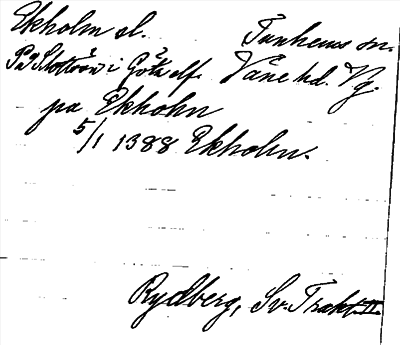 Ekholm sl. Tunhems sn.
På Slottsön i Göta elf. Väne hd. Vg.
pa Ekholm
5/1 1388 Ekholm.
Rydberg, Sv. Trakt. II